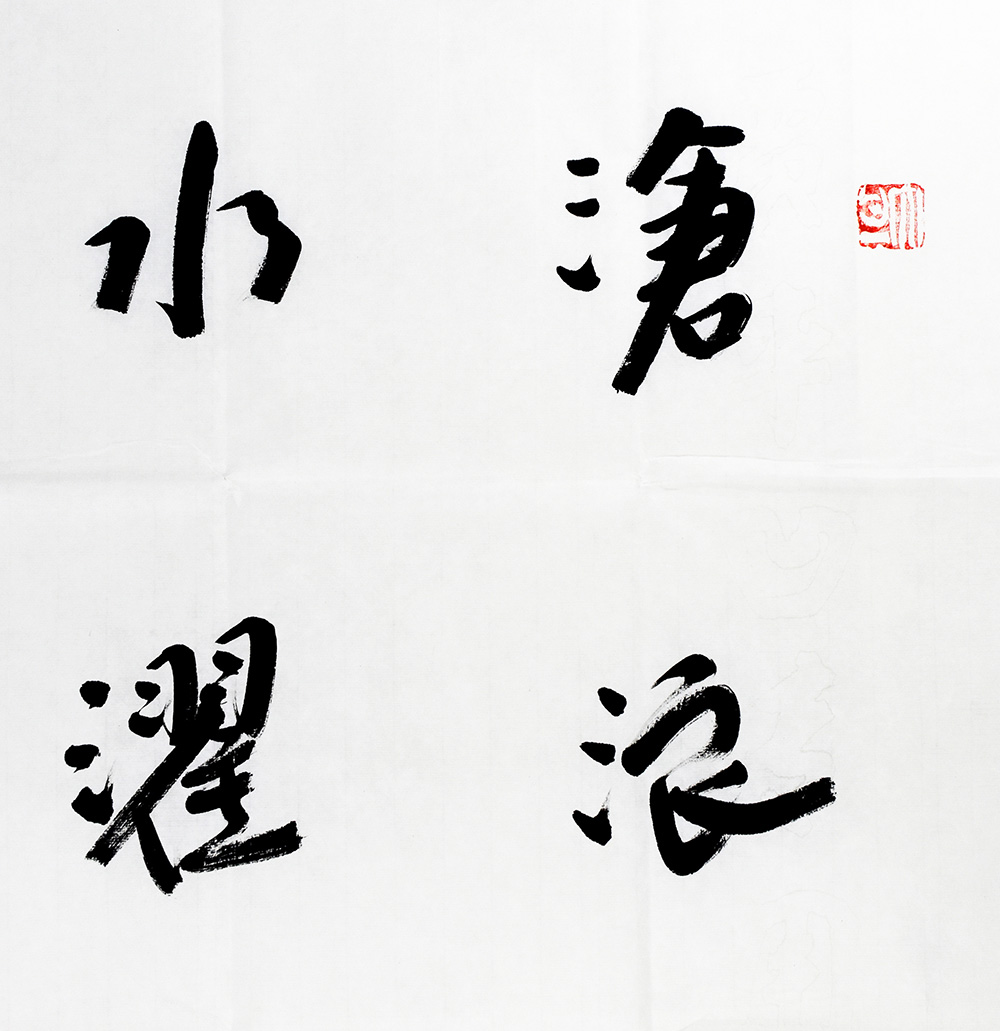 滄浪
水濯